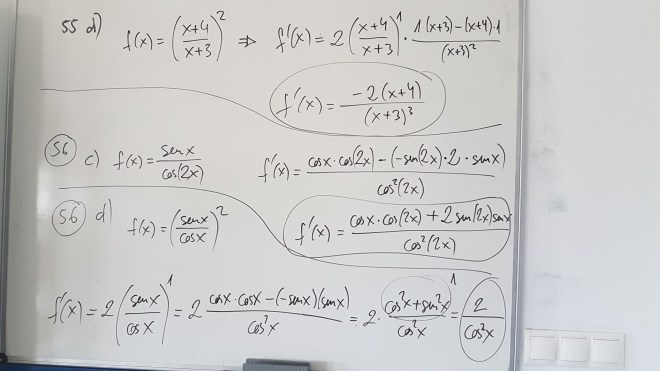 55 d) f(x) = (x+4/x+3)² ⇒ f'(x) = 2(x+4/x+3)¹ · 1(x+3)-(x+4)·1/(x+3)²
f'(x) = -2(x+4)/(x+3)³
56 c) f(x) = senx/cos(2x) f'(x) = cosx·cos(2x)-(-sen(2x)·2·senx)/cos²(2x)
f'(x) = cosx·cos(2x)+2sen(2x)senx/cos²(2x)
56 d) f(x) = (senx/cosx)²
f'(x) = 2(senx/cosx)¹ = 2 cosx·cosx-(-senx)(senx)/cos²x = 2· cos²x+sen²x/cos²x ¹ = 2/cos²x